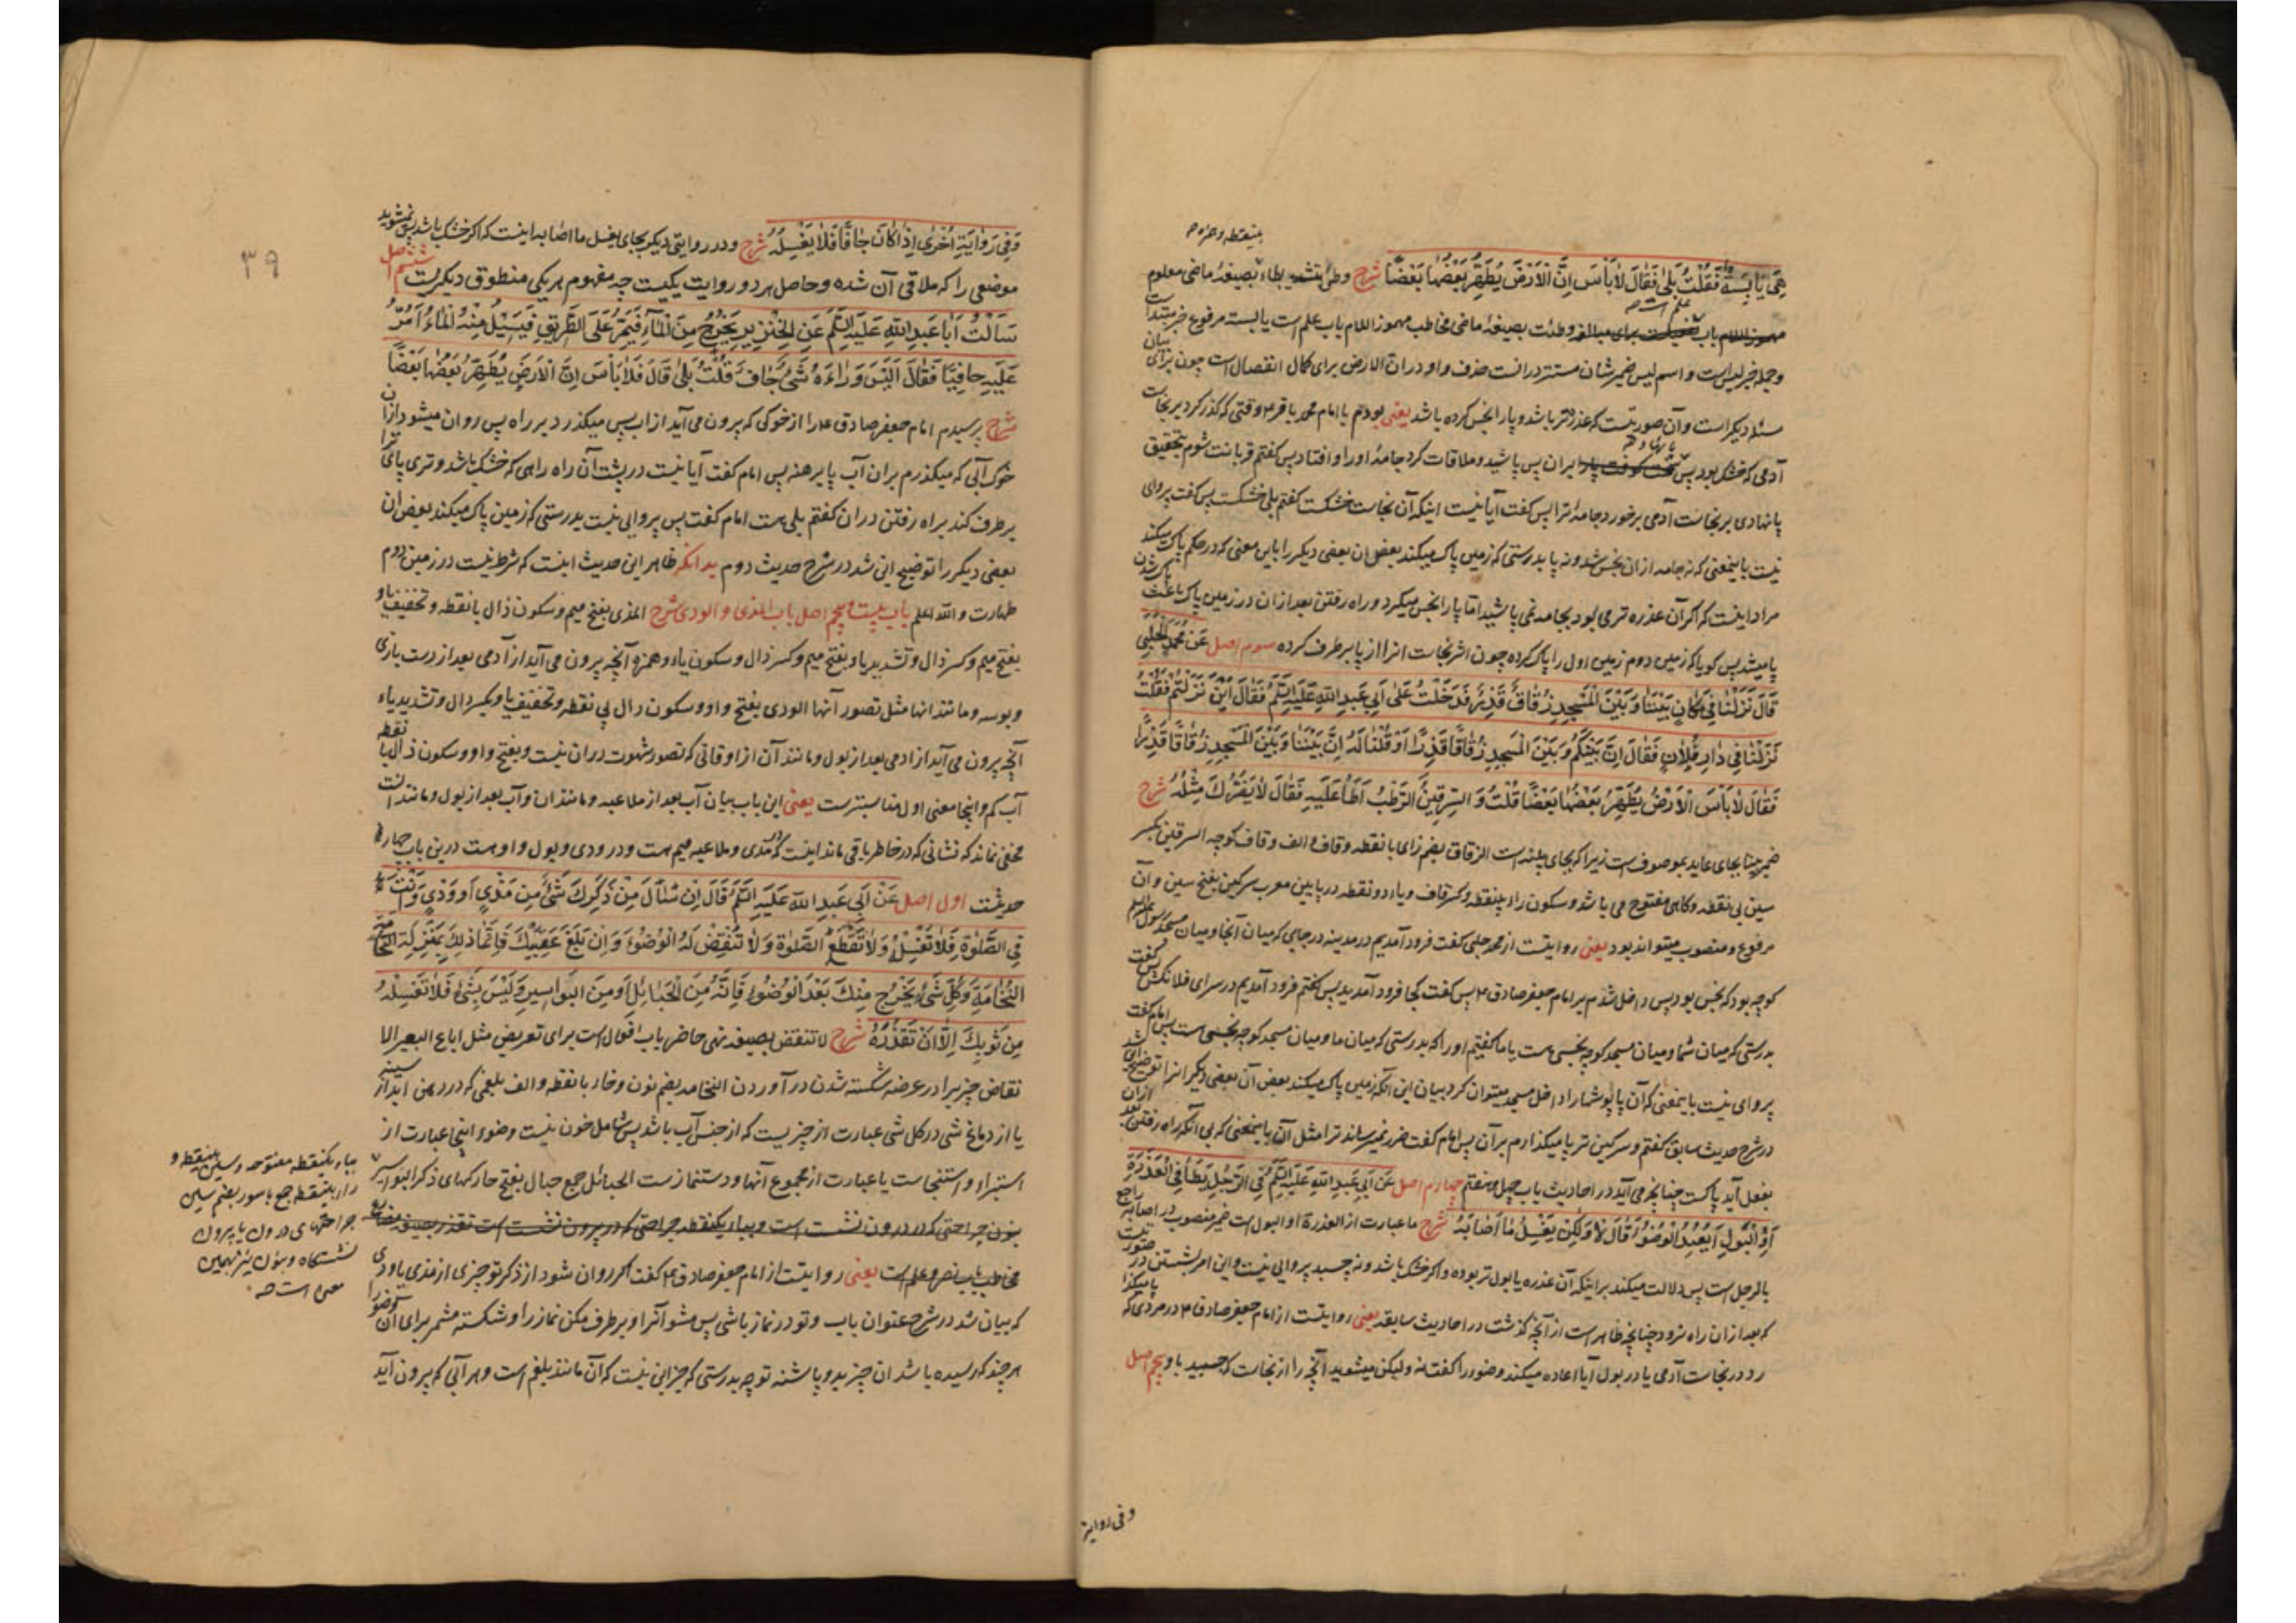 بینقطه و همزه صح
هِیَ یَابِسَةٌ فَقُلْتُ بَلٰی فَقَالَ لٰا بَأْسَ اِنَّ الْاَرْضَ یُطَهِّرُ بَعْضُهٰا بَعْضًا شرح وطئ بطاء بصیغهٔ ماضی معلوم
مهموز اللام باب علم است صح برای مبالغه وطئت بصیغهٔ ماضی مخاطب مهموز اللام باب علم است یابسة مرفوع خبر مبتداست
و جمله خبر لیس است و اسم لیس ضمیر شان مستتر در انست حذف واو در ان الارض برای کمال انفصال است چون برای بیان
مسئله دیکر است و آن صورتیست که عذره تر باشد و پا را نجس کرده باشد یعنی بودم با امام محمد باقر ۴ وقتی که کذر کرد بر نجاست
آدمی که خشک بود پس بر ان پس پاشید و ملاقات کرد جامهٔ او را و افتاد پس کفتم قربانت شوم بتحقیق
پا نهادی بر نجاست آدمی برخورد جامهٔ ترا پس کفت آیا نیست اینکه آن نجاست خشکست کفتم بلی خشکست پس کفت پروای
نیست باینمعنی که نه جامه از ان نجس شد و نه پا بدرستی که زمین پاک میکند بعض ان بعضی دیکر را باین معنی که در حکم پاک میکند
مراد اینست که اکر آن عذره تر می بود بجامه نمی پاشید اما پا را نجس میکرد و راه رفتن بعد از ان در زمین پاک باعث پاک شدن
پا میشد پس کویا که زمین دوم زمین اول را پاک کرده چون اثر نجاست انرا از پا برطرف کرده سوم اصل عَنْ مُحَمَّدٍ الْحَلَبِیِّ
قَالَ نَزَلْنَا فِی مَکَانٍ بَیْنَنَا وَ بَیْنَ الْمَسْجِدِ زُقَاقٌ قَذِرٌ فَدَخَلْتُ عَلٰی اَبِی عَبْدِ اللّٰهِ عَلَیْهِ السَّلَمُ فَقَالَ اَیْنَ نَزَلْتُمْ فَقُلْتُ
نَزَلْنَا فِی دَارِ فُلٰانٍ فَقَالَ اِنَّ بَیْنَکُمْ وَ بَیْنَ الْمَسْجِدِ زُقَاقًا قَذِرًا اَوْ قُلْنَا لَهُ اِنَّ بَیْنَنَا وَ بَیْنَ الْمَسْجِدِ زُقَاقًا قَذِرًا
فَقَالَ لٰا بَأْسَ الْاَرْضُ یُطَهِّرُ بَعْضُهَا بَعْضًا قُلْتُ وَ السِّرْقِینُ الرَّطْبُ اَطَأُ عَلَیْهِ فَقَالَ لٰا یَضُرُّکَ مِثْلُهُ شرح
ضمیر بیننا بجای عاید بموصوف است زیرا که بجای بینه است الزقاق بضم زای با نقطه و قاف و الف و قاف کوچه السرقین بکسر
سین بی نقطه و کاهی مفتوح می باشد و سکون راء بینقطه و کسر قاف و یاء دو نقطه در پایین معرب سرکین بفتح سین و آن
مرفوع و منصوب میتواند بود یعنی روایتست از محمد حلبی کفت فرود آمدیم در مدینه در جایی که میان آنجا و میان مسجد رسول
کوچه بود که نجس بود پس داخل شدم بر امام جعفر صادق ۴ پس کفت کجا فرود آمدید پس کفتم فرود آمدیم در سرای فلانکس پس کفت
بدرستی که میان شما و میان مسجد کوچه نجسی هست یا ما کفتیم او را که بدرستی که میان ما و میان مسجد کوچه نجسی هست پس امام کفت
پروای نیست باینمعنی که آن پاپوشها را داخل مسجد میتوان کرد بیان این آنکه زمین پاک میکند بعض آن بعضی دیکر انرا توضیح این شد
در شرح حدیث سابق کفتم و سرکین تر پا میکذارم بر آن پس امام کفت ضرر نمیرساند ترا مثل آن باینمعنی که بی آنکه راه رفتن بعد از ان
بفعل آید پاکست چنانچه می آید در احادیث باب چهل و هفتم چهارم اصل عَنْ اَبِی عَبْدِ اللّٰهِ عَلَیْهِ السَّلَمُ فِی الرَّجُلِ یَطَأُ فِی الْعَذِرَةِ
اَوِ الْبَوْلِ اَیُعِیدُ الْوُضُوءَ قَالَ لٰا وَ لٰکِنْ یَغْسِلُ مَا اَصَابَهُ شرح ما عبارت از العذرة او البول است ضمیر منصوب در اصابه راجع
بالرجل است پس دلالت میکند بر اینکه آن عذره یا بول تر بوده و اکر خشک باشد و نه چسبد پروایی نیست و این امر بشستن در صورتیست
که بعد از ان راه نرود چنانچه ظاهر است از آنچه کذشت در احادیث سابقه یعنی روایتست از امام جعفر صادق ۴ در مردی که پا میکذارد
در نجاست آدمی یا در بول آیا اعاده میکند وضو را کفت نه ولیکن میشوید آنچه را از نجاست که چسبید باو پنجم اصل
و فی روایة
۳۹
وَ فِی رِوَایَةٍ اُخْرٰی اِذَا کَانَ جَافًّا فَلٰا یَغْسِلْهُ شرح و در روایتی دیکر بجای یغسل ما اصابه اینست که اکر خشک باشد پس نمیشوید
موضعی را که ملاقی آن شده و حاصل هر دو روایت یکیست چه مفهوم هر یکی منطوق دیکریست ششم اصل
سَأَلْتُ اَبَا عَبْدِ اللّٰهِ عَلَیْهِ السَّلَمُ عَنِ الْخِنْزِیرِ یَخْرُجُ مِنَ الْمَاءِ فَیَمُرُّ عَلَی الطَّرِیقِ فَیَسِیلُ مِنْهُ الْمَاءُ اَمُرُّ
عَلَیْهِ حَافِیًا فَقَالَ اَلَیْسَ وَرَاءَهُ شَیْءٌ جَافٌّ قُلْتُ بَلٰی قَالَ فَلٰا بَأْسَ اِنَّ الْاَرْضَ یُطَهِّرُ بَعْضُهَا بَعْضًا
شرح پرسیدم امام جعفر صادق ۴ را از خوکی که بیرون می آید از اب پس میکذرد بر راه پس روان میشود از ان
خوک آبی که میکذرم بر ان آب پا برهنه پس امام کفت آیا نیست در پشت آن راه راهی که خشک باشد و تری پای ترا
برطرف کند براه رفتن در ان کفتم بلی هست امام کفت پس پروایی نیست بدرستی که زمین پاک میکند بعض ان
بعضی دیکر را توضیح این شد در شرح حدیث دوم بدانکه ظاهر این حدیث اینست که شرط نیست در زمین دوم
طهارت و الله اعلم باب بیست و پنجم اصل باب المذی و الودی شرح المذی بفتح میم و سکون ذال با نقطه و تخفیف یاء و
بفتح میم و کسر ذال و تشدید یاء و بفتح میم و کسر ذال و سکون یاء و همزه آنچه بیرون می آید از آدمی بعد از دست بازی
و بوسه و مانند انها مثل تصور آنها الودی بفتح واو و سکون دال بی نقطه و تخفیف یا و بکسر دال و تشدید یاء
آنچه بیرون می آید از ادمی بعد از بول و مانند آن از اوقاتی که تصور شهوت در ان نیست و بفتح واو و سکون ذال با نقطه
آب کم و اینجا معنی اول مناسبترست یعنی این باب بیان آب بعد از ملاعبه و مانند ان و آب بعد از بول و مانند انست
مخفی نماند که نشانی که در خاطر باقی ماند اینست که در مذی و ملاعبه میم هست و در ودی و بول واو هست درین باب چهار
حدیثست اول اصل عَنْ اَبِی عَبْدِ اللّٰهِ عَلَیْهِ السَّلَمُ قَالَ اِنْ سَالَ مِنْ ذَکَرِکَ شَیْءٌ مِنْ مَذْیٍ اَوْ وَدْیٍ وَ اَنْتَ
فِی الصَّلٰوةِ فَلٰا تَغْسِلْهُ وَ لٰا تَقْطَعِ الصَّلٰوةَ وَ لٰا تَنْقُضْ لَهُ الْوُضُوءَ وَ اِنْ بَلَغَ عَقِبَیْکَ فَاِنَّمَا ذٰلِکَ بِمَنْزِلَةِ
النُّخَامَةِ وَ کُلُّ شَیْءٍ یَخْرُجُ مِنْکَ بَعْدَ الْوُضُوءِ فَاِنَّهُ مِنَ الْحَبَائِلِ اَوْ مِنَ الْبَوَاسِیرِ وَ لَیْسَ بِشَیْءٍ فَلٰا تَغْسِلْهُ
مِنْ ثَوْبِکَ اِلّٰا اَنْ تَقْذَرَهُ شرح لا تنقض بصیغه نهی حاضر باب افعال است برای تعریض مثل اباع البعیر الا
نقاض چیزیرا در عرضه شکسته شدن در آوردن النخامه بضم نون و خاء با نقطه و الف بلغمی که در دهن اید از سینه
یا از دماغ شی در کل شی عبارت از چیزیست که از جنس آب باشد پس شامل خون نیست وضوء اینجا عبارت از
استبراء و استنجاست یا عبارت از مجموع آنها و دستنمازست الحبائل جمع حبال بفتح حا رکهای ذکر البواسیر
بنون جراحتی که در درون نشست است و بباء یکنقطه جراحتی که در بیرون نشست است تقذر بصیغه مضارع
مخاطب باب نصر و علم است یعنی روایتست از امام جعفر صادق ۴ کفت اکر روان شود از ذکر تو چیزی از مذی یا ودی
که بیان شد در شرح عنوان باب و تو در نماز باشی پس مشو آنرا و برطرف مکن نماز را و شکسته مشمر برای ان وضو را
هر چند که رسیده باشد ان چیز بدو پاشنه تو چه بدرستی که جز این نیست که آن مانند بلغم است و هر آبی که بیرون آید
بباء یکنقطه مفتوحه و سین بینقطه و
راء بینقطه جمع باسور بضم سین
جراحتهای درون یا بیرون
نشستکاه و بنون نیز بهمین
معنی است صح